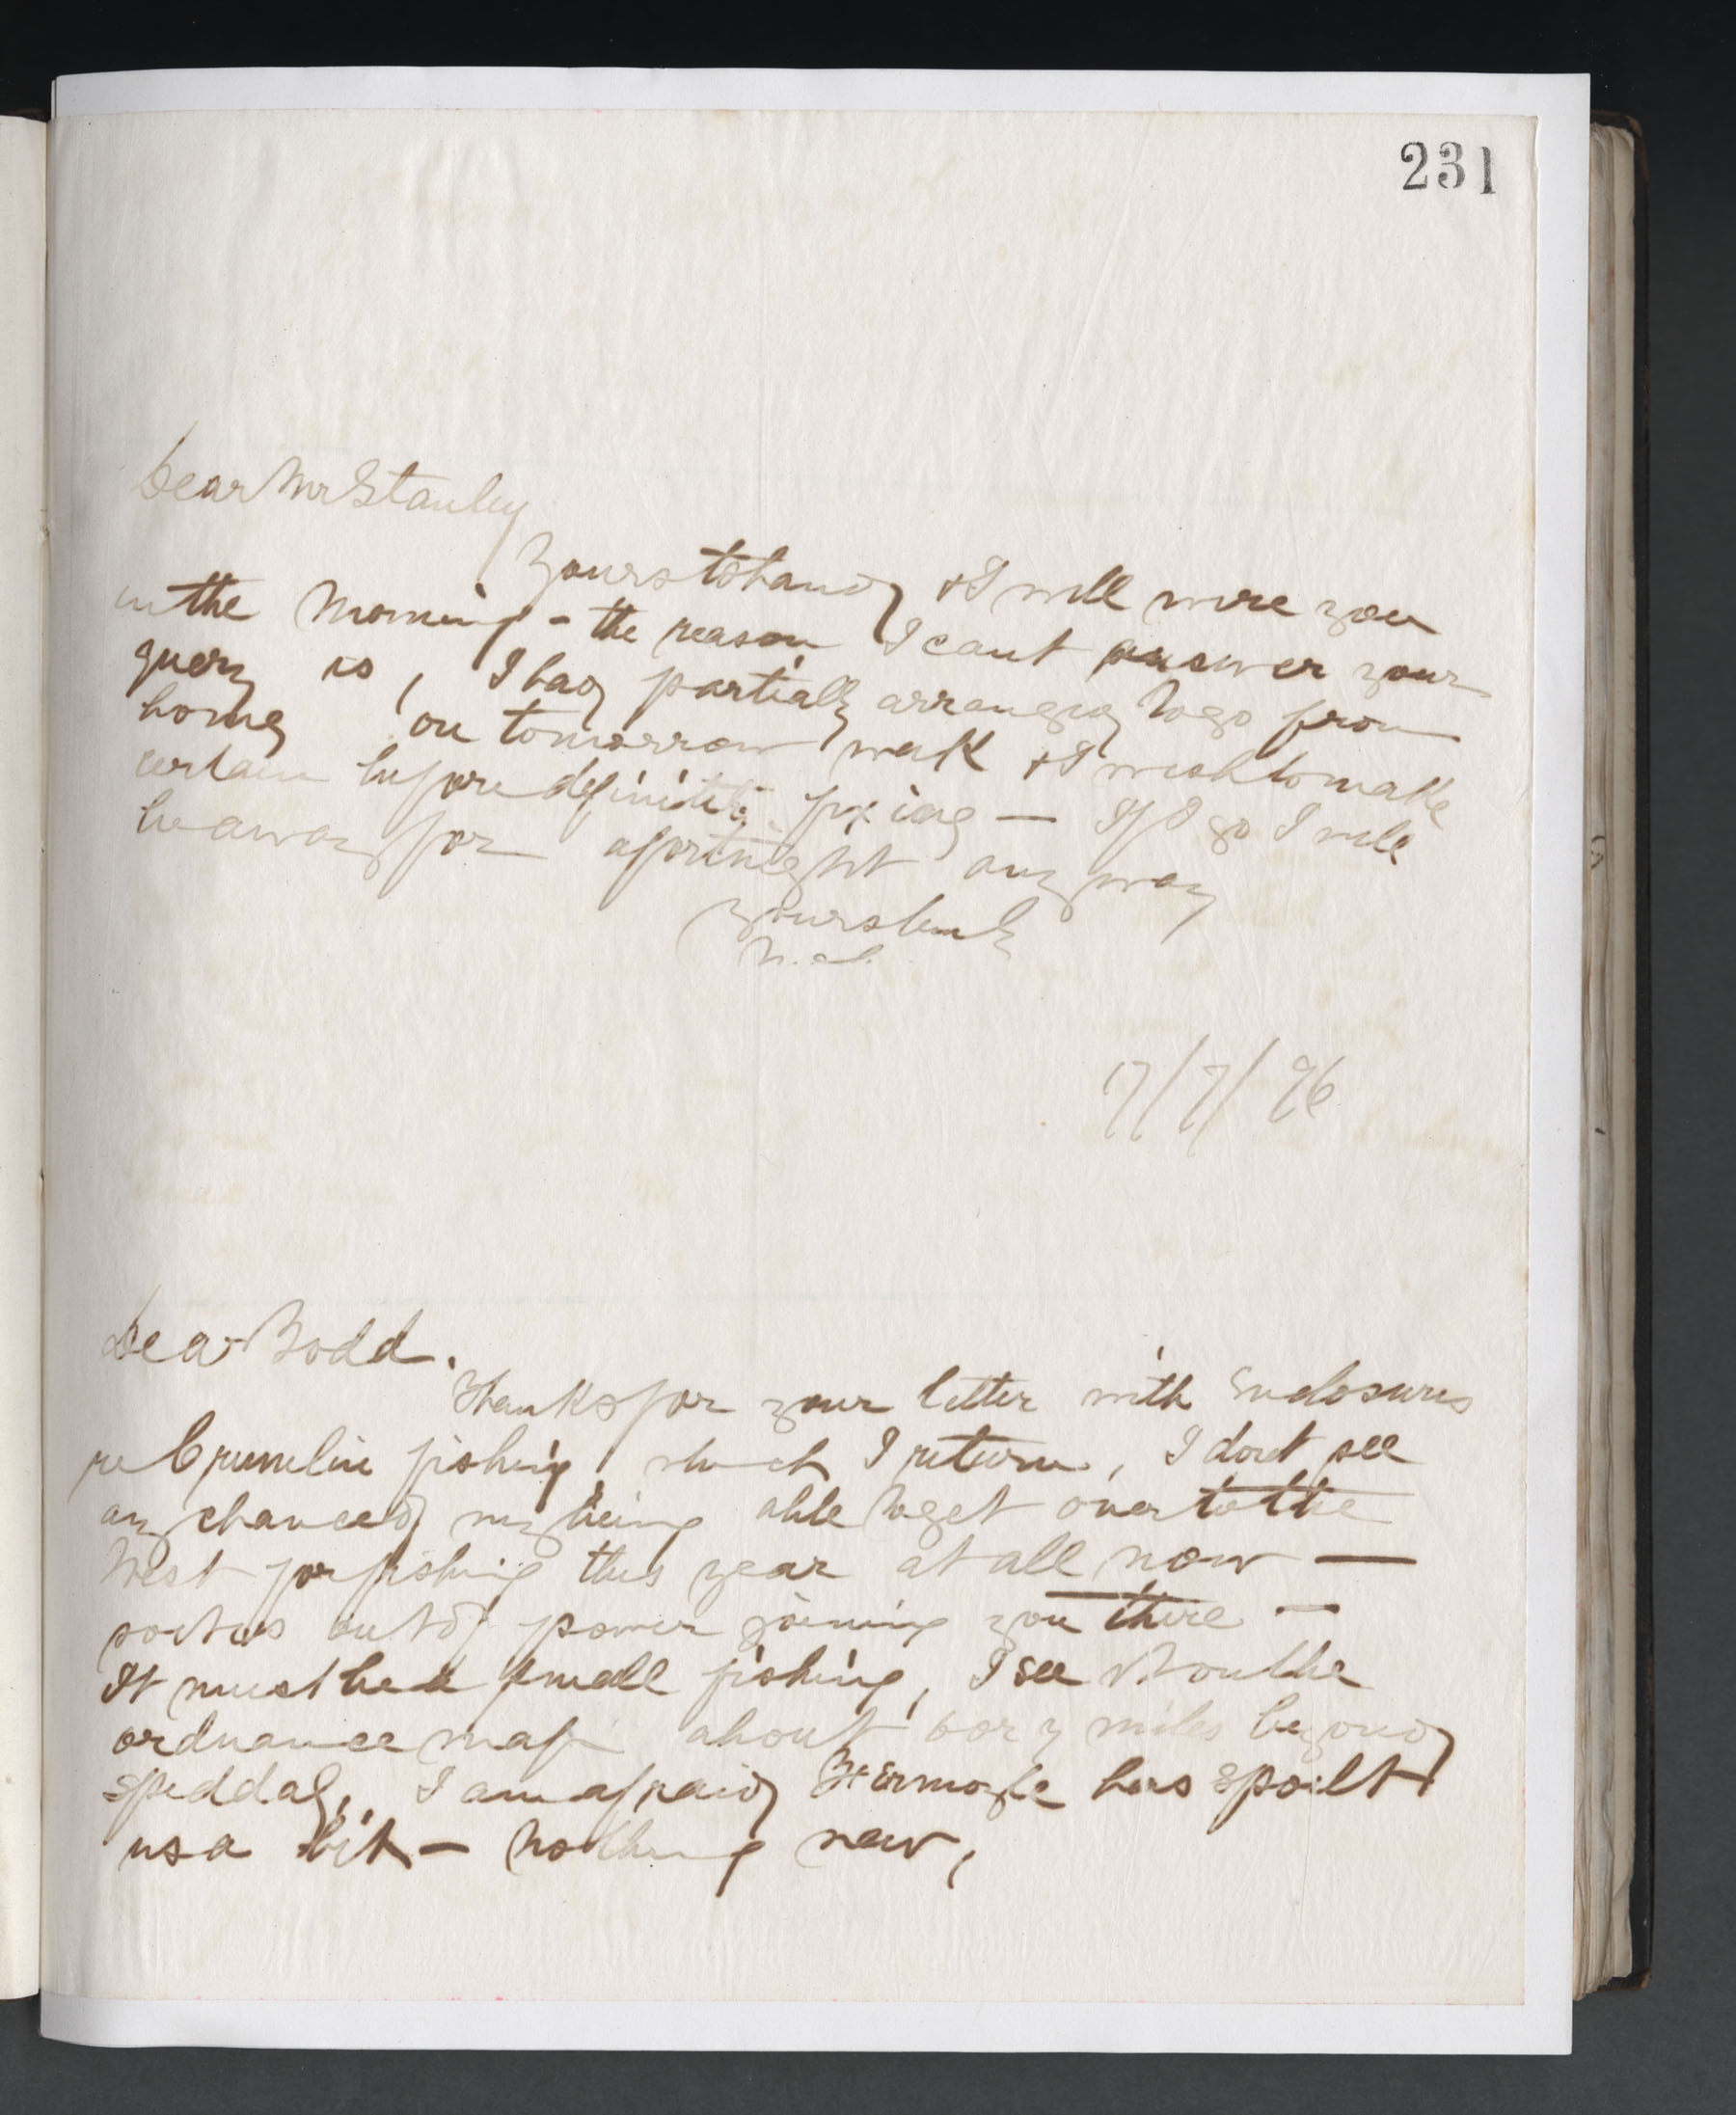 231
Dear Mr Stanley
Yours to hand & I will wire you
in the Morning - the reason I cant answer your
query is, I had partially arranged to go from
home on tomorrow week & I wish to make
certain before definitely fixing — If I go I will
be away for a fortnight any way
Yours truly
17/7/96
Dear Dodd.
Thanks for your letter with Enclosures
re Crumlin fishing, which I return, I dont see
any chance of my being able to get over to the
West for fishing this year at all now —
so it is out of power joining you there —
It must be a small fishing, I see it on the
ordnance map about 6 or 7 miles beyond
Spiddal, I am afraid has spoilt
us a bit — Nothing new,